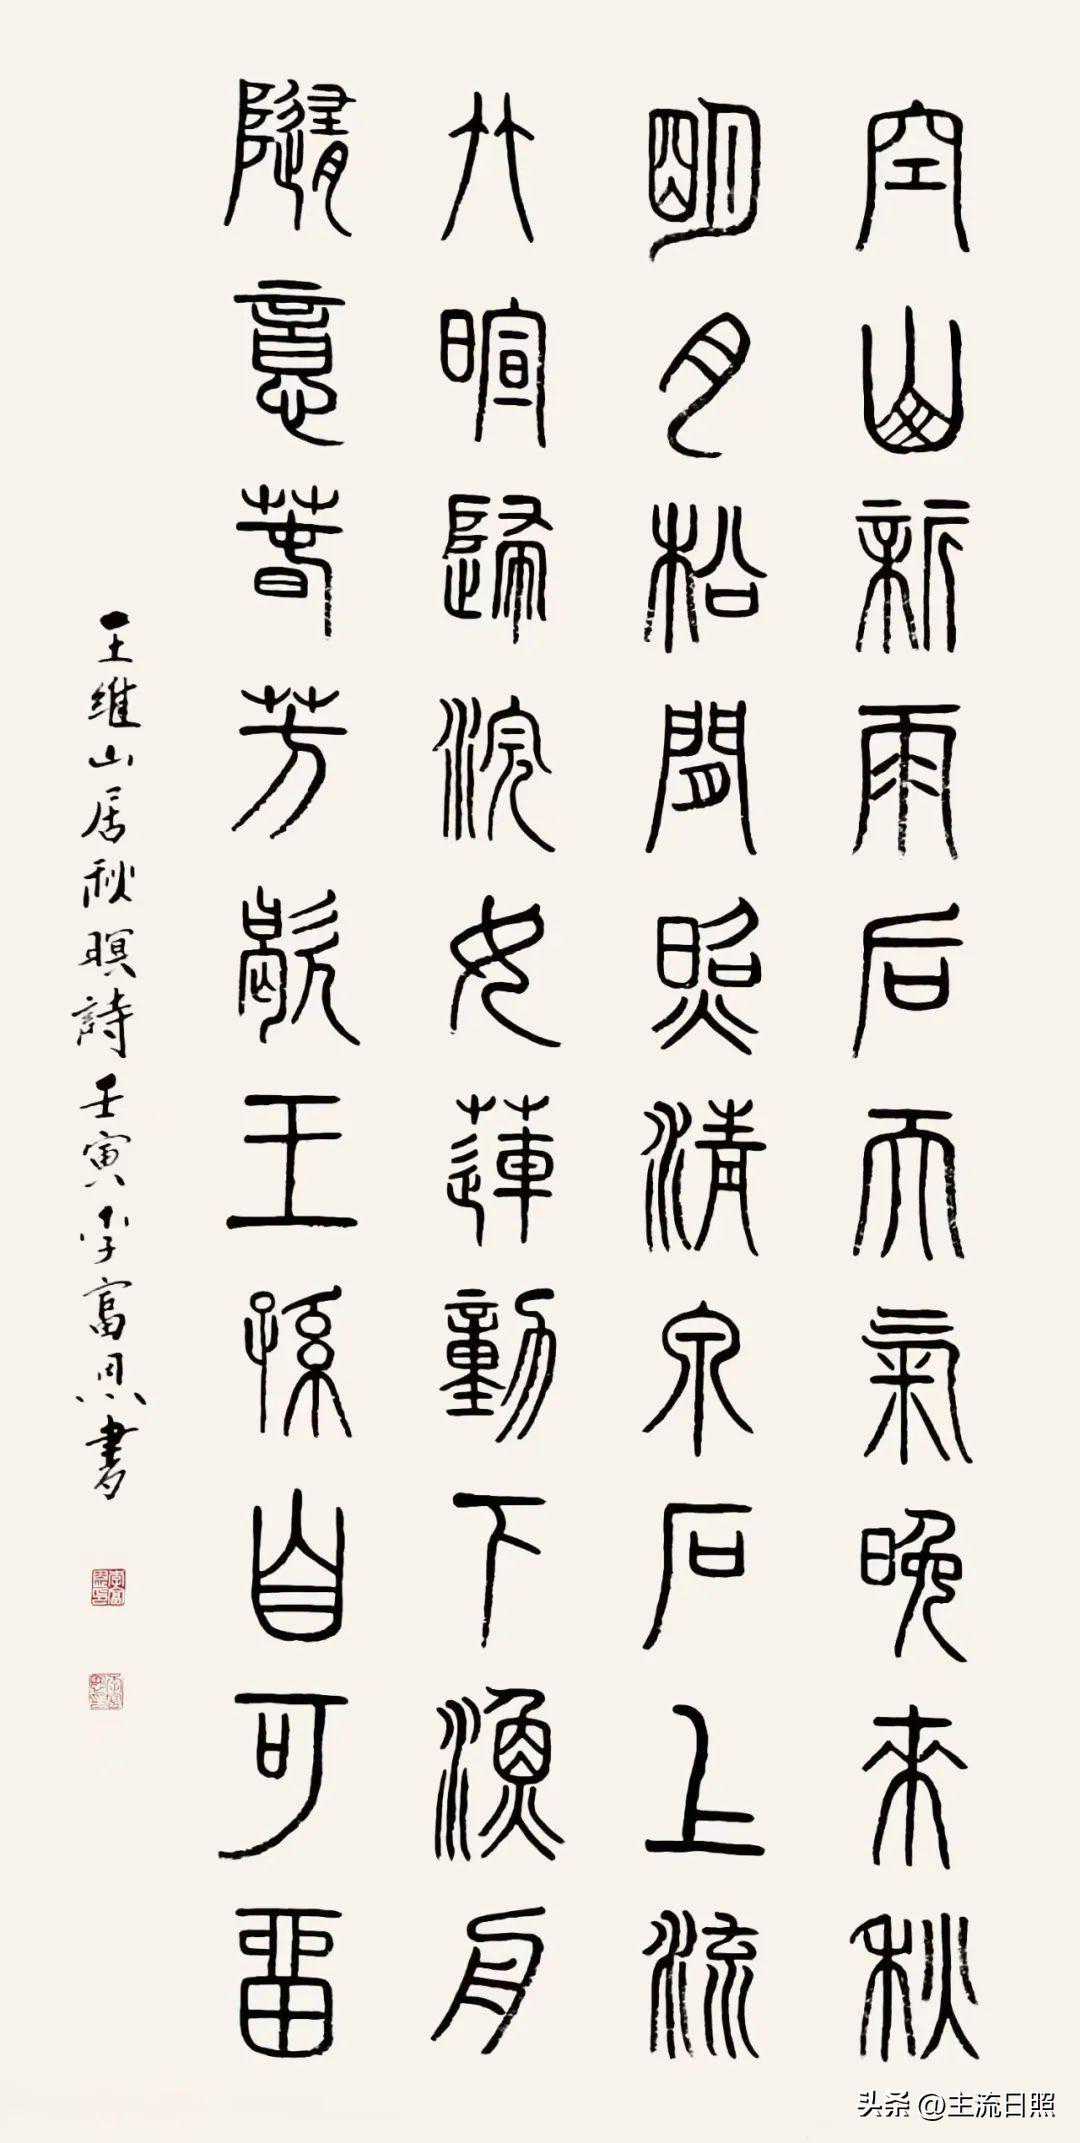 空山新雨后天氣晚來秋
明月松間照清泉石上流
竹暄歸浣女蓮動下漁舟
隨意春芳歇王孫自可留
王維山居秋暝詩壬寅李富恩書
头条 @主流日照